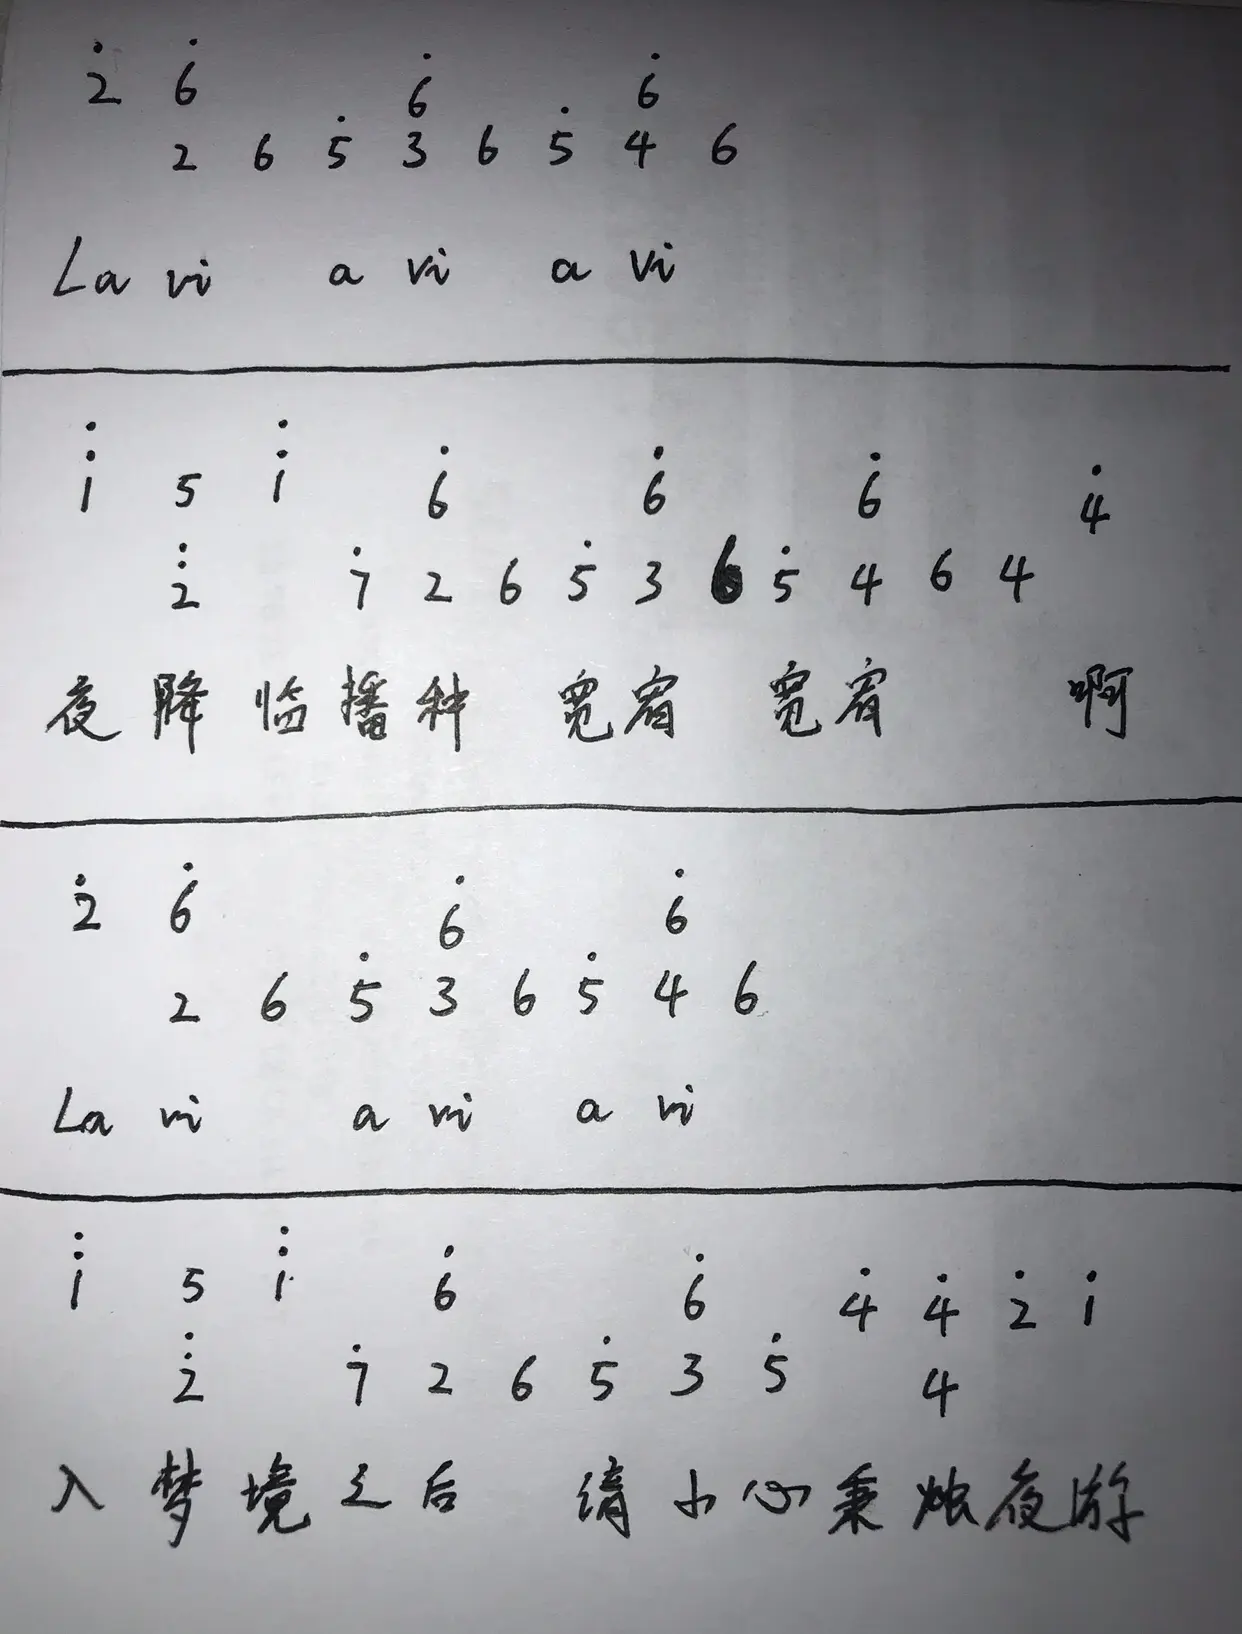 2̇ 6̇ 6̇ 6̇
2 6 5̇ 3 6 5̇ 4 6
La vi a vi a vi
1̇̇ 5 1̇̇ 6̇ 6̇ 6̇ 4̇
2̇̇ 7̇ 2 6 5̇ 3 6 5̇ 4 6 4
夜降临播种 宽宥 宽宥 啊
2̇ 6̇ 6̇ 6̇
2 6 5̇ 3 6 5̇ 4 6
La vi a vi a vi
1̇̇ 5 1̇̇ 6̇ 6̇ 4̇ 4̇ 2̇ 1̇
2̇̇ 7̇ 2 6 5̇ 3 5̇ 4
入梦境之后 请小心秉烛夜游